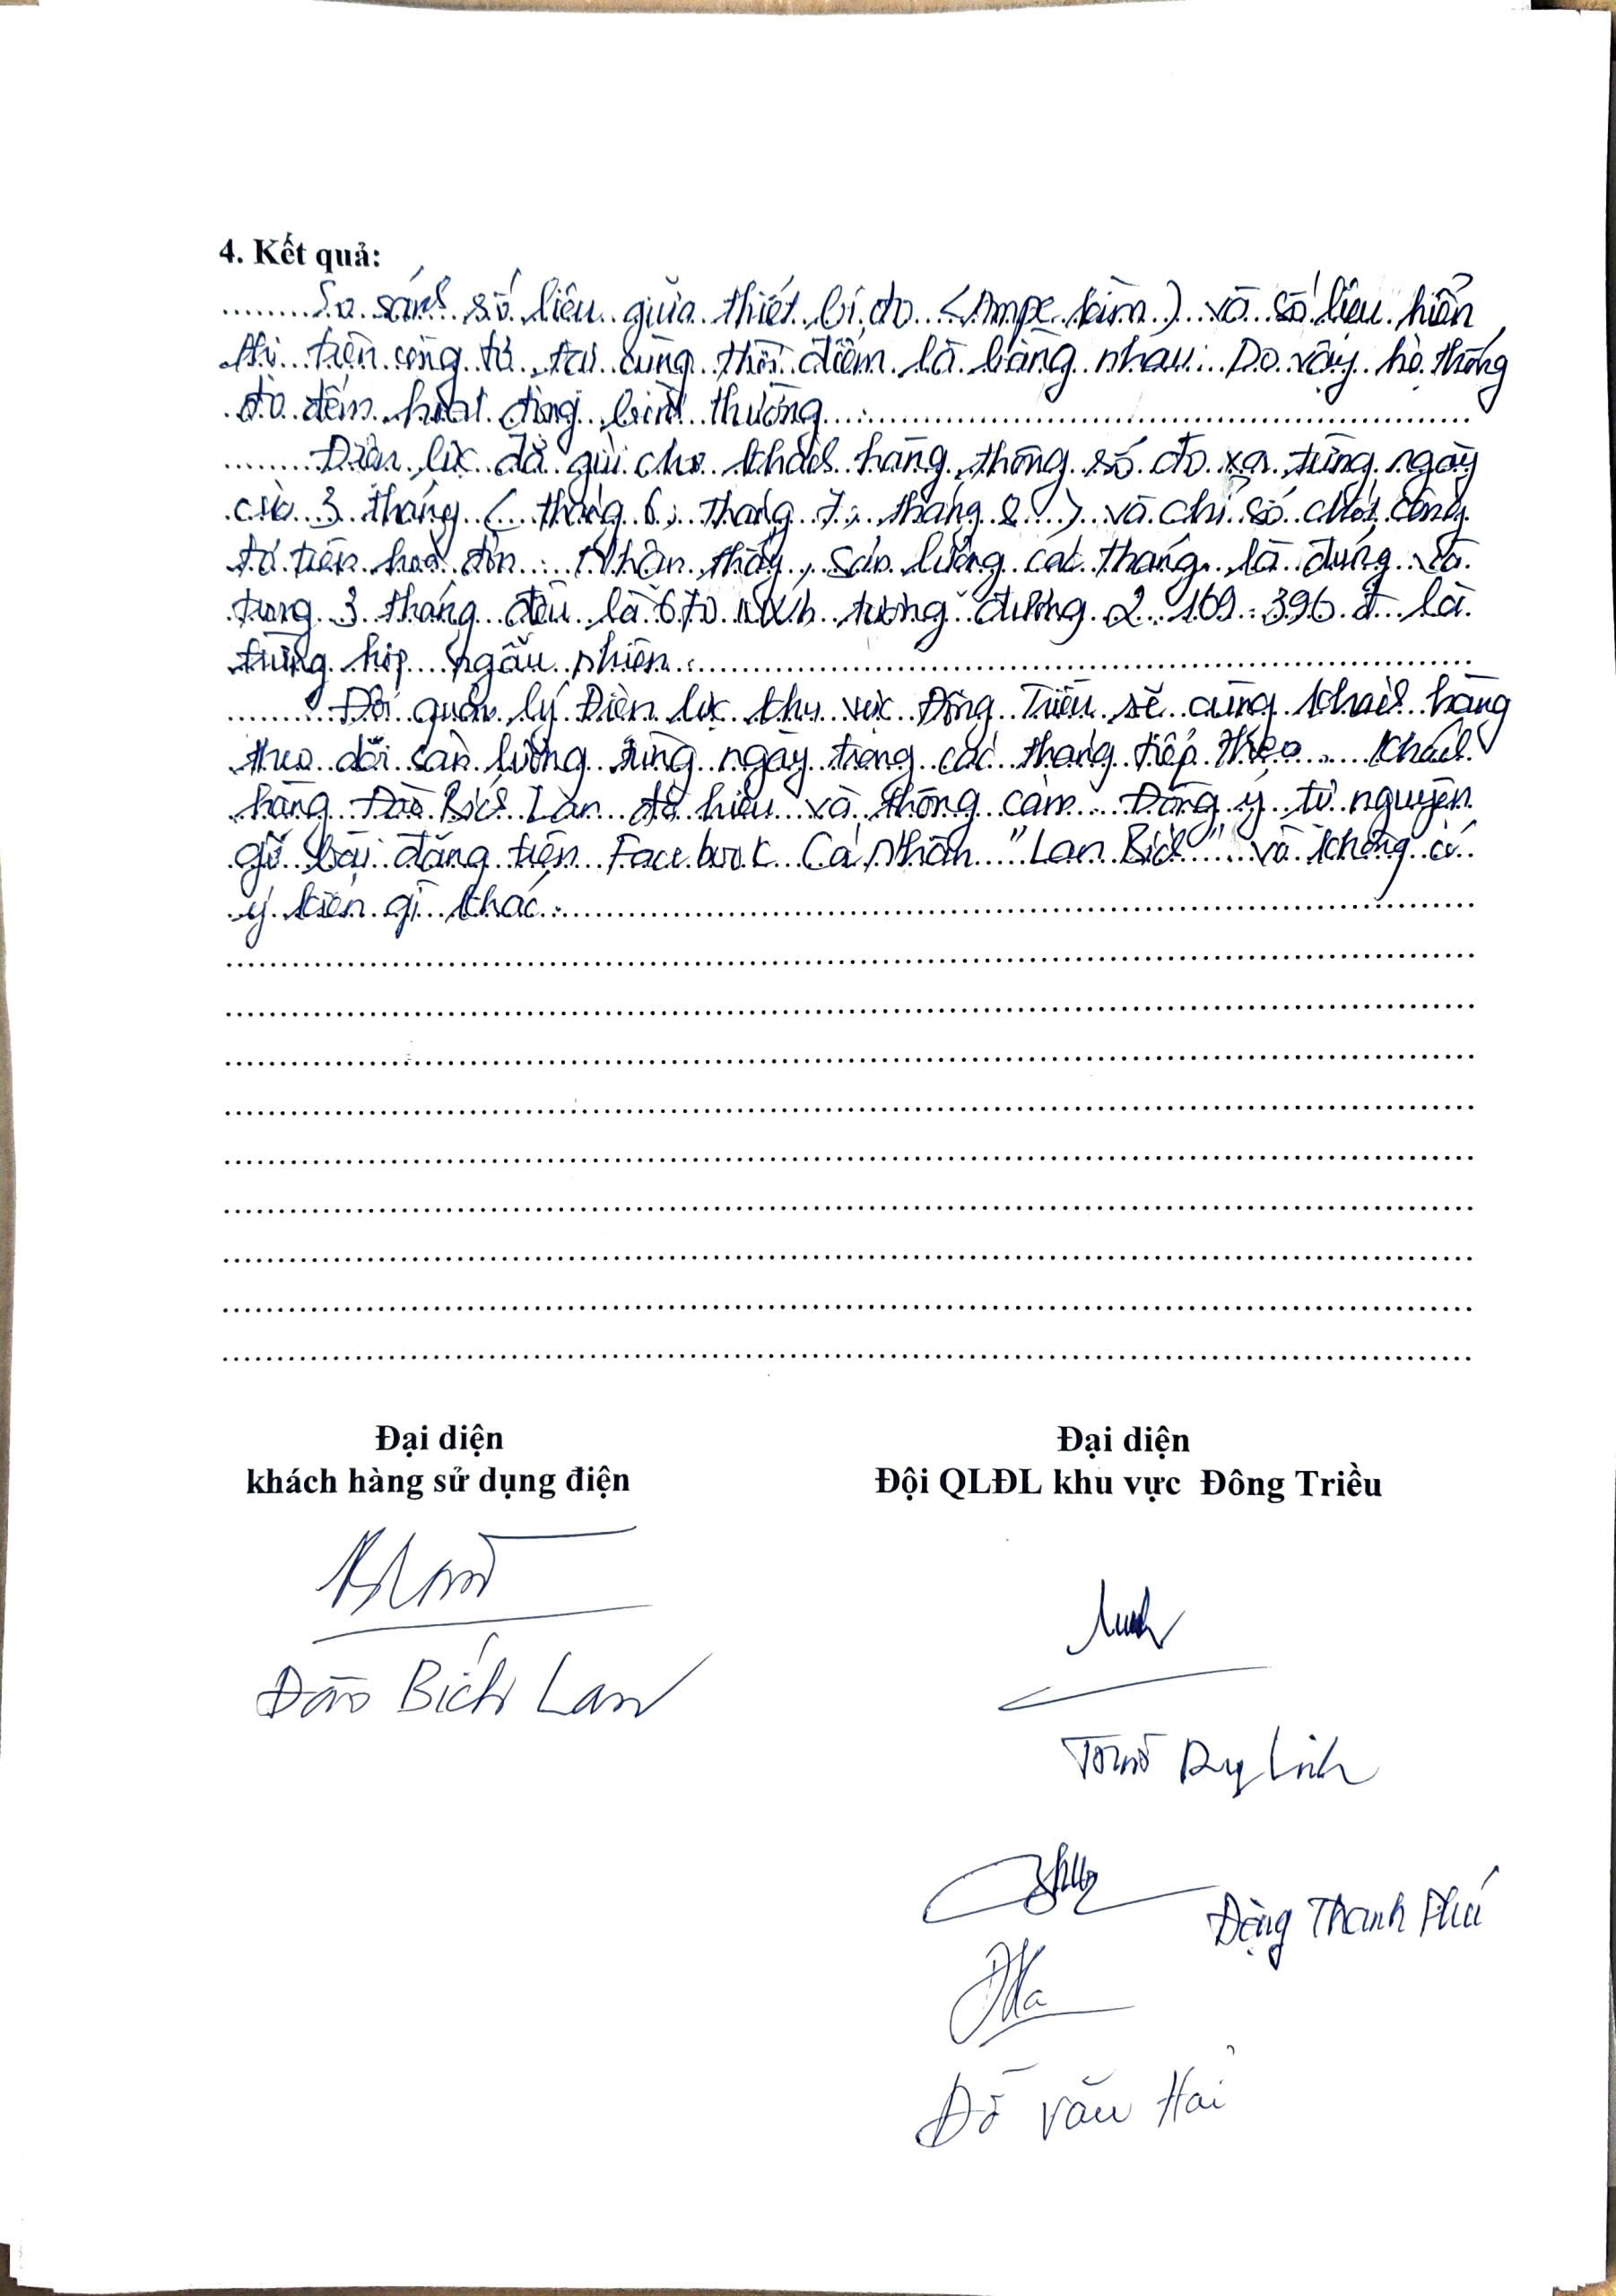 4. Kết quả:
So sánh số liệu giữa thiết bị đo (Ampe kìm) và số liệu hiển
thị trên công tơ tại cùng thời điểm là bằng nhau. Do vậy hệ thống
đo đếm hoạt động bình thường.
Điện lực đã gửi cho khách hàng thông số đo xa từng ngày
của 3 tháng (tháng 6; tháng 7; tháng 8) và chỉ số chốt công
tơ trên hoá đơn. Nhận thấy, sản lượng các tháng là đúng và
trong 3 tháng đều là 670 kWh tương đương 2.169.396 đ là
trùng hợp ngẫu nhiên.
Đội quản lý Điện lực khu vực Đông Triều sẽ cùng khách hàng
theo dõi sản lượng từng ngày trong các tháng tiếp theo. Khách
hàng Đào Bích Lan đã hiểu và thông cảm. Đồng ý, tự nguyện
gỡ bài đăng trên Facebook Cá nhân "Lan Bích" và không có
ý kiến gì khác.
Đại diện
khách hàng sử dụng điện
Đào Bích Lan
Đại diện
Đội QLĐL khu vực Đông Triều
Duy Linh
Đặng Thanh Phú
Đỗ Văn Hải